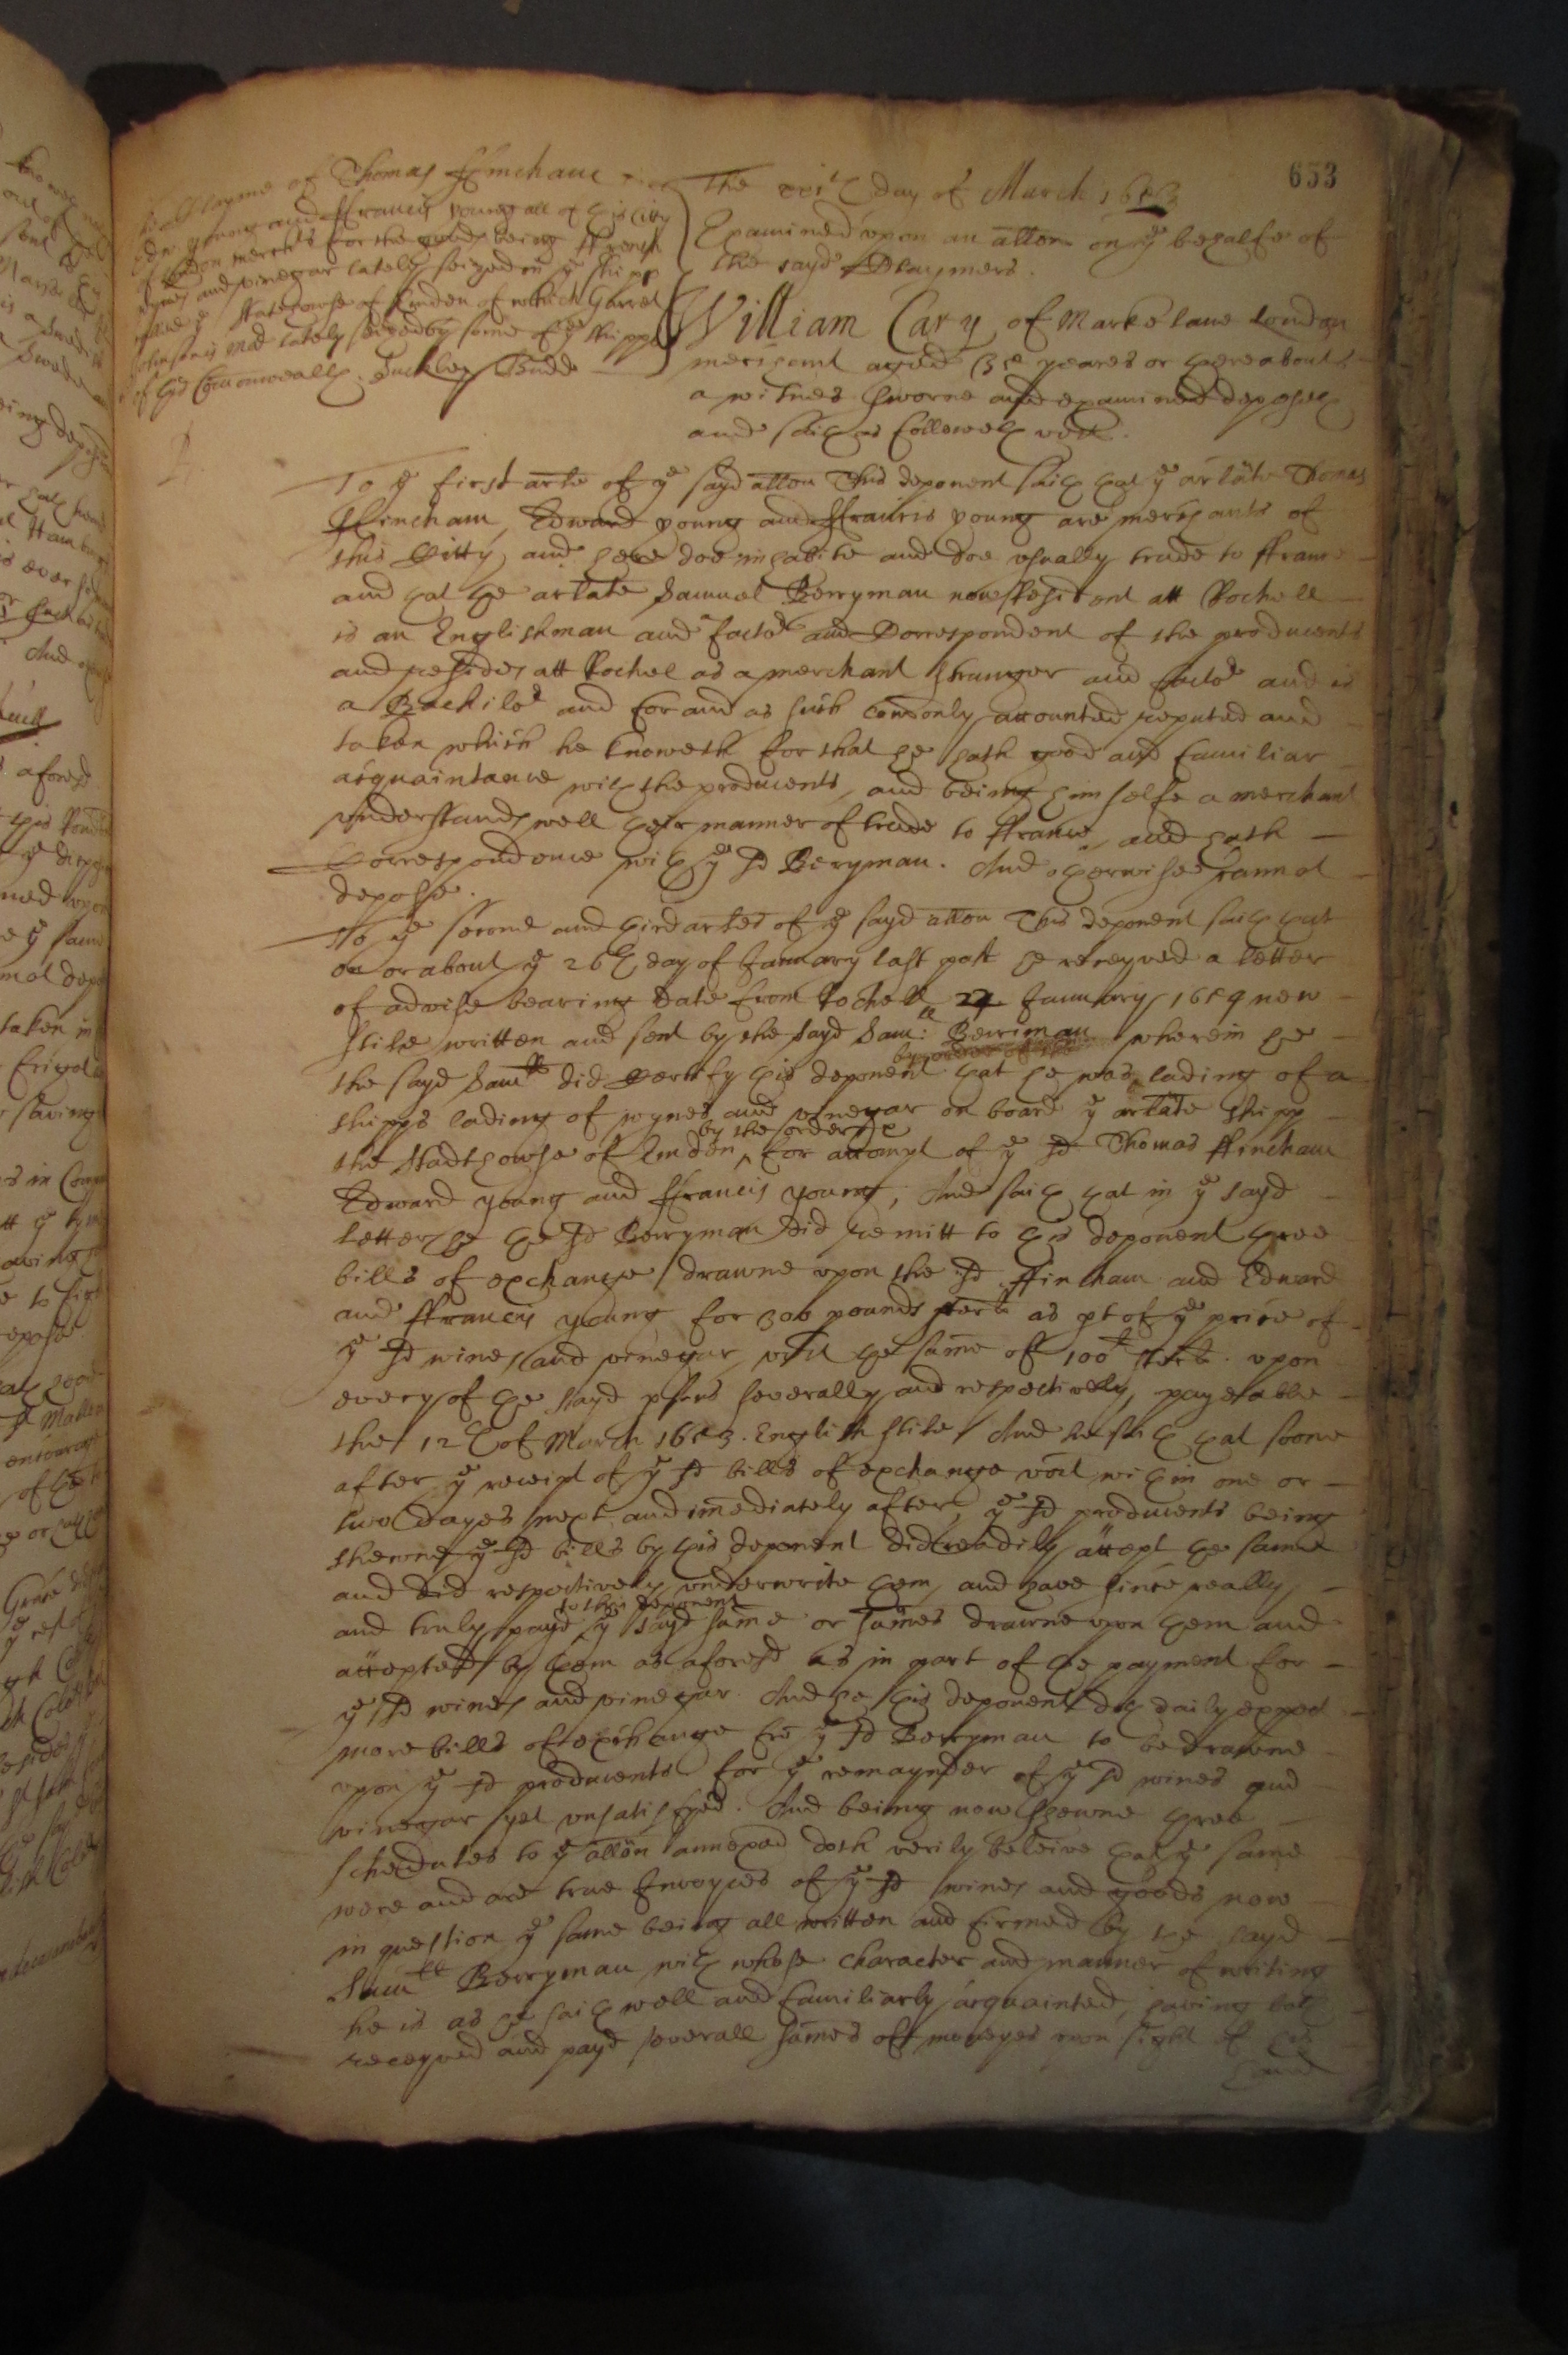 653
The Clayme of Thomas ffincham
Edw: Young and ffrancis Young all of this Citty
of London merchts for the goods being ffrench
wynes and vinegar lately seized in ye shipp
called ye Statehouse of Emden of which Garret
Johnson is Mr lately seized by some of ye shipps
of this Comonwealth. Suckley Budd
The xxith day of March 1653
Examined upon an allon on ye behalfe of
the sayd Claymers.
William Cary of Marke lane London
merchant aged 35 yeares or thereabouts
a witnes sworne and examined deposeth
and saith as followeth vizt.
To ye first arte of ye sayd allon This deponent saith that ye arlate Thomas
ffincham, Edward young and ffrancis young are merchants of
this Citty, and here doe inhabite and doe usually trade to ffrance
and that the arlate Samuel Berryman now Resident att Rochell
is an Englishman and factor and Correspondent of the producents
and resides att Rochel as a merchant stranger and factor and is
a Bachilor and for and as such comonly accounted reputed and
taken which he knoweth for that he hath good and familiar
acquaintance with the producents, and being himselfe a merchant
understands well their manner of trade to ffrance, and hath
Correspondence with ye sd Beryman. And otherwise cannot
depose.
To ye second and third arles of ye sayd allon This deponent saith that
on or about ye 26th day of January last past he receyved a letter
of advise bearing date from Rochell 24 January 1654 new
stile written and sent by the sayd Sam:ll Berriman wherein he
the sayd Samll did Certify this deponent that he was lading of a
shipps lading of wynes and vinegar on board ye arlate shipp
the Stadthowse of Emden by the order & for accompt of ye sd Thomas ffincham
Edward young and ffrancis young, And saith that in ye sayd
letter he the sd Berryman did remitt to this deponent three
bills of exchange drawne upon the sd ffincham and Edward
and ffrancis young for 300 pounds sterl: as pt of ye price of
ye sd wines and vinegar, vizt the same of 100l sterl: upon
every of the sayd psons severally and respectively, payeable
the 12th of March 1653. English stile And he saith that soone
after ye receipt of ye sd bills of exchange vizt within one or
two dayes next and imediately after, ye sd producents being
shewne ye sd bills by this deponent did readily accept the same
and did respectively underwrite them, and have since really
and truly payd to this deponent ye sayd same or sumes drawne upon them and
accepted by them as aforesd as in part of the payment for
ye sd wines and vinegar. And he this deponent doth daily expect
more bills of exchange fro ye sd Berryman to be drawne
upon ye sd producents for ye remaynder of ye sd wines and
vinegar yet unsatisfyed. And being now shewne three
schedules to ye allon annexed doth verily beleive that ye same
were and are true Invoyces of ye sd wines and goods now
in question ye same being all written and firmed by the sayd
Samll Berryman with whose character and manner of writing
he is as he saith well and familiarly acquainted, having both
receyved and payd severall sumes of moneyes upon sight of his
hand